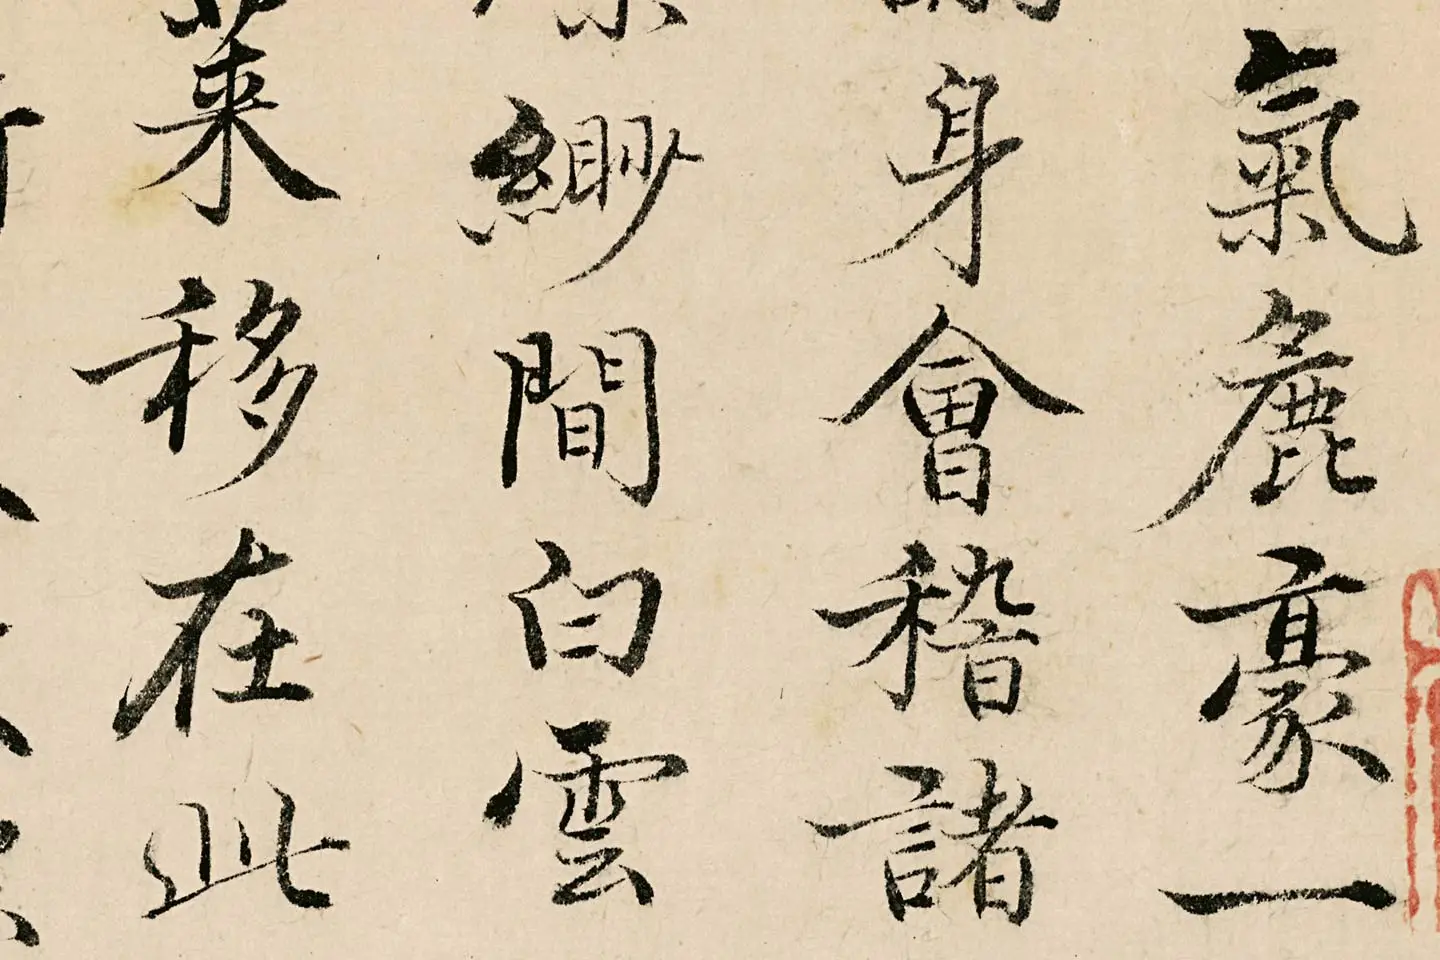 氣麄豪一
身會稽諸
緲間白雲
萊移在此